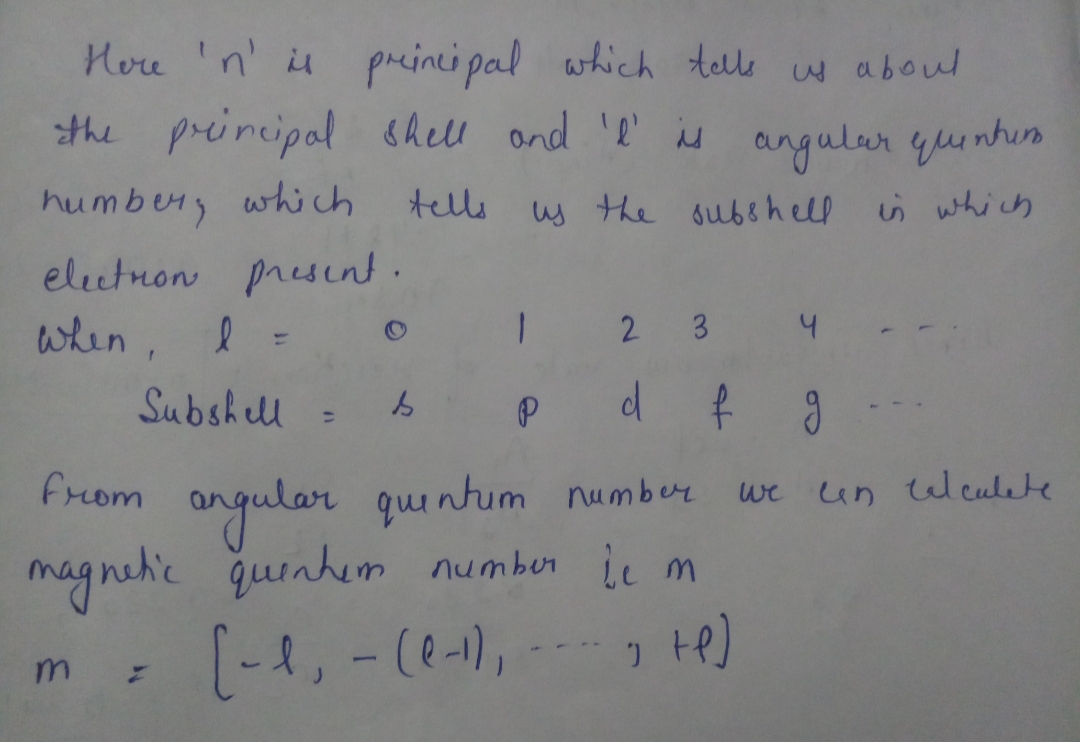 Here 'n' is principal which tells us about
the principal shell and 'l' is angular quentum
number, which tells us the subshell in which
electron present.
When, l = 0 1 2 3 4 ----
Subshell = s p d f g ----
From angular quentum number we cen celculete
magnetic quentem number i.e m
m = [-l, -(l-1), ----, +l]